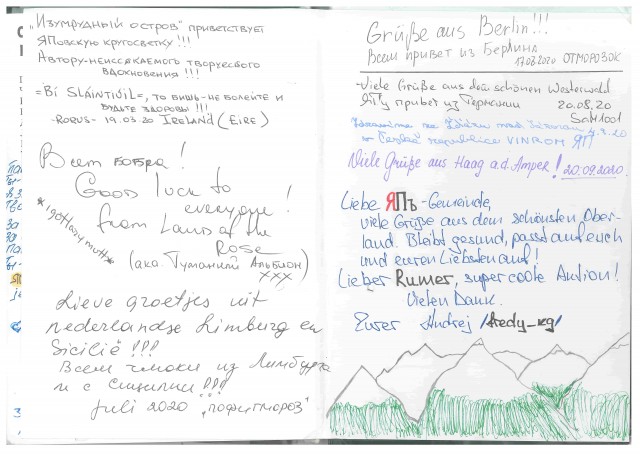 "Изумрудный остров" приветствует
ЯПовскую кругосветку !!!
Автору - неиссякаемого творческого
вдохновения !!!
=Bí Sláintiúil=, то бишь - не болейте и
будьте здоровы !!!
-Rorus- 19.03.20 Ireland (Eire)
Всем бобра!
Good luck to
everyone!
from Land of the
Rose
(aka. Туманный Альбион)
xxx
Lieve groetjes uit
nederlandse Limburg en
Sicilië !!!
Всем чмоки из Лимбурга
и с Сицилии !!!
juli 2020 "пофигмороз"
Grüße aus Berlin!!!
Всем привет из Берлина
17.03.2020 ОТМОРОЗОК
-Viele Grüße aus dem schönen Westerwald
ЯПу привет из Германии 20.08.20
Viele Grüße aus Haag a.d. Amper! 20.09.2020
Liebe ЯПъ-Gemeinde,
viele Grüße aus dem schönsten Ober-
land. Bleibt gesund, passt auf euch
und euren Liebsten auf!
Lieber Rumer, super coole Aktion!
Vielen Dank.
Eurer Andrej